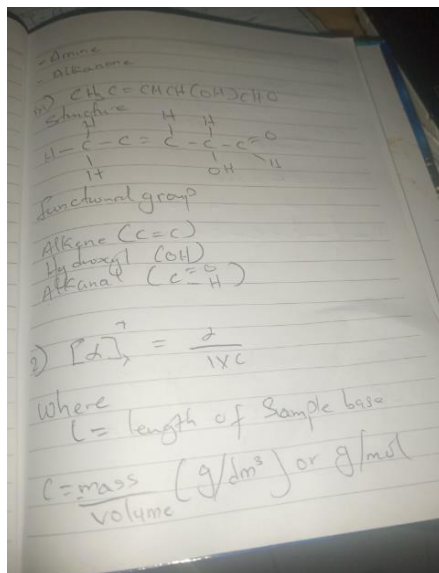 - Amine
- Alkanone
iii) CH3C = CHCH(OH)CHO
Structure
H H H
H - C - C = C - C - C = O
H OH H
functional group
Alkene (C=C)
Hydroxyl (OH)
Alkanal (C=O H)
2) [α] = α / l x C
Where
l = length of Sample base
C = mass / volume (g/dm³) or g/mol